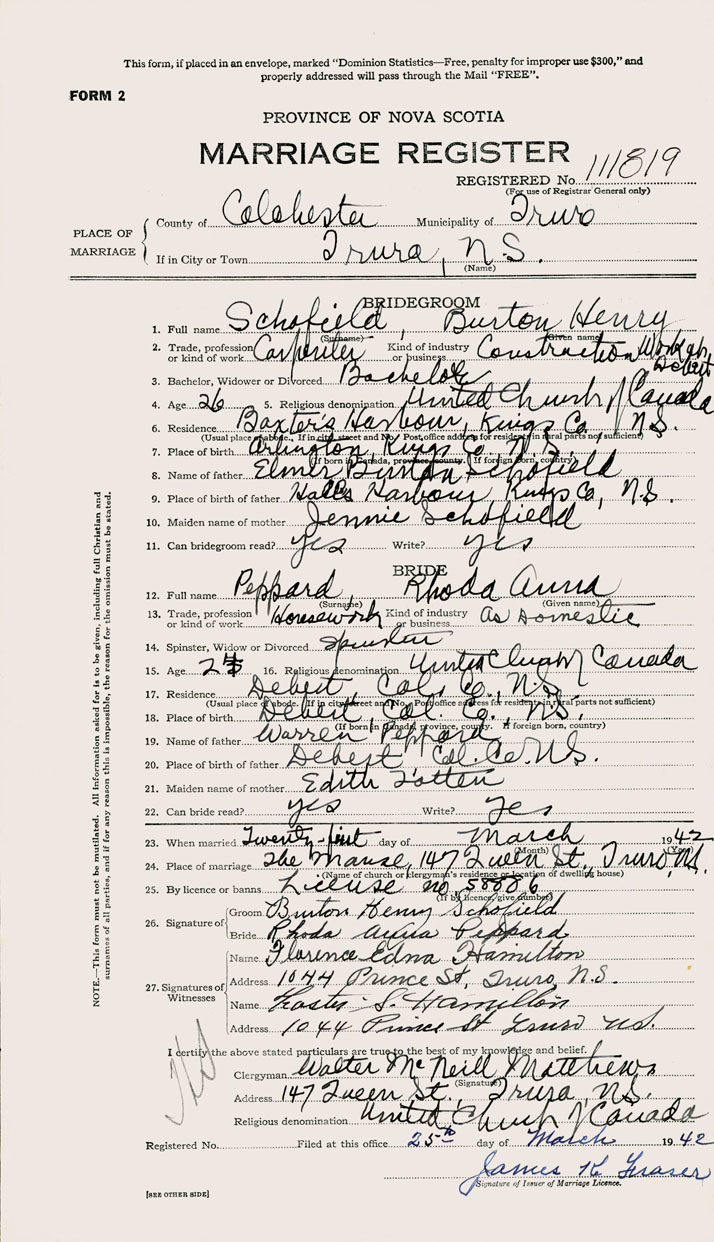 This form, if placed in an envelope, marked "Dominion Statistics—Free, penalty for improper use $300," and
properly addressed will pass through the Mail "FREE".
FORM 2
PROVINCE OF NOVA SCOTIA
MARRIAGE REGISTER
REGISTERED No. 111819
(For use of Registrar General only)
PLACE OF MARRIAGE
County of Colchester Municipality of Truro
If in City or Town Truro, N.S.
(Name)
BRIDEGROOM
1. Full name Schofield, Burton Henry
(Surname) (Given name)
2. Trade, profession or kind of work Carpenter Kind of industry or business Construction Work at Debert
3. Bachelor, Widower or Divorced Bachelor
4. Age 26 5. Religious denomination United Church of Canada
6. Residence Baxter's Harbour, Kings Co. N.S.
(Usual place of abode. If in city, street and No. Post office address for residents in rural parts not sufficient)
7. Place of birth Arlington, Kings Co. N.S.
(If born in Canada, province, county. If foreign born, country)
8. Name of father Elmer Burton Schofield
9. Place of birth of father Halls Harbour, Kings Co, N.S.
10. Maiden name of mother Jennie Schofield
11. Can bridegroom read? yes Write? yes
BRIDE
12. Full name Peppard, Rhoda Anna
(Surname) (Given name)
13. Trade, profession or kind of work Housework Kind of industry or business As Domestic
14. Spinster, Widow or Divorced Spinster
15. Age 24 16. Religious denomination United Church of Canada
17. Residence Debert, Col. Co., N.S.
(Usual place of abode. If in city, street and No. Post office address for residents in rural parts not sufficient)
18. Place of birth Debert, Col. Co., N.S.
(If born in Canada, province, county. If foreign born, country)
19. Name of father Warren Peppard
20. Place of birth of father Debert, Col. Co. N.S.
21. Maiden name of mother Edith Totten
22. Can bride read? yes Write? yes
23. When married Twenty-first day of March 1942
(Month) (Year)
24. Place of marriage The Manse, 147 Queen St., Truro, N.S.
(Name of church or clergyman's residence or location of dwelling house)
25. By licence or banns License no.
(If by licence, give number)
26. Signature of
Groom Burton Henry Schofield
Bride Rhoda Anna Peppard
27. Signatures of Witnesses
Name Florence Edna Hamilton
Address 1044 Prince St, Truro, N.S.
Name Foster S. Hamilton
Address 1044 Prince St Truro N.S.
I certify the above stated particulars are true to the best of my knowledge and belief.
Clergyman Walter McNeill Matthews
(Signature)
Address 147 Queen St., Truro, N.S.
Religious denomination United Church of Canada
Registered No. Filed at this office 25th day of March 1942
James K Fraser
Signature of Issuer of Marriage Licence.
[SEE OTHER SIDE]
NOTE.—This form must not be mutilated. All information asked for is to be given, including full Christian and
surnames of all parties, and if for any reason this is impossible, the reason for the omission must be stated.